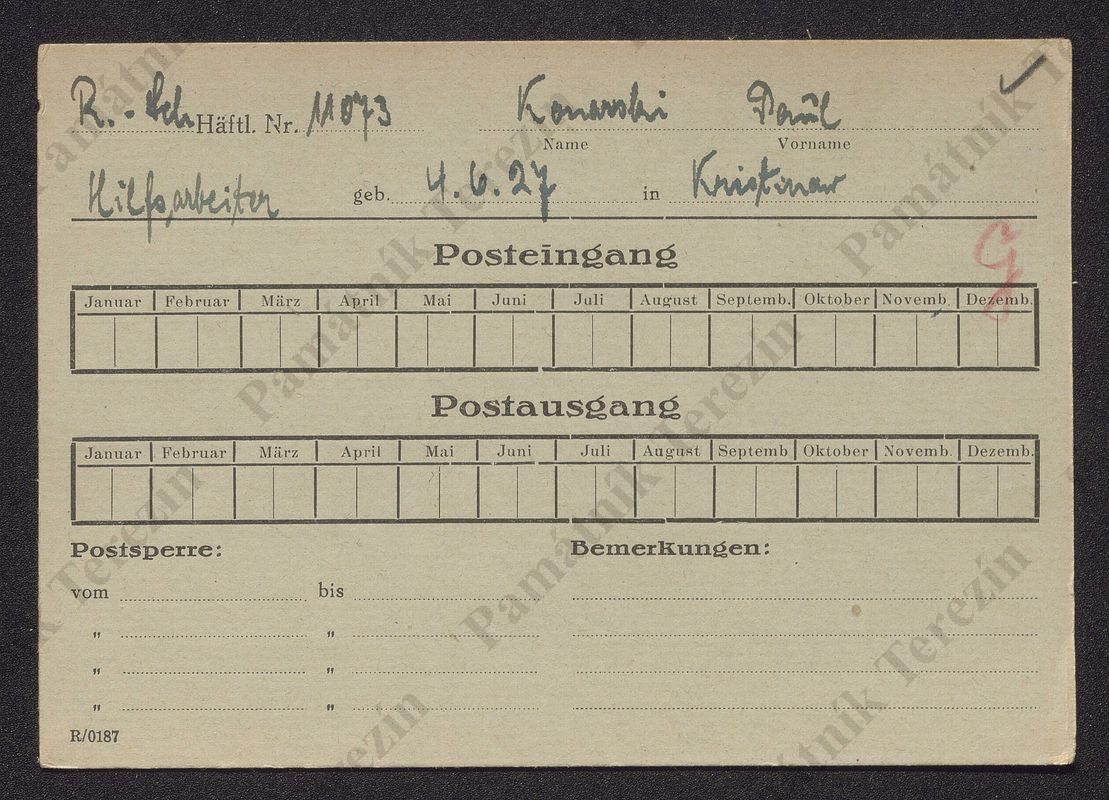 R.-Sch. Häftl. Nr. 11073 Konarski Paul
Name Vorname
Hilfsarbeiter geb. 4.6.27 in Kristinow
G
Posteingang
Januar Februar März April Mai Juni Juli August Septemb. Oktober Novemb. Dezemb.
Postausgang
Januar Februar März April Mai Juni Juli August Septemb Oktober Novemb. Dezemb.
Postsperre: Bemerkungen:
vom bis
" "
" "
" "
R/0187
Památník Terezín